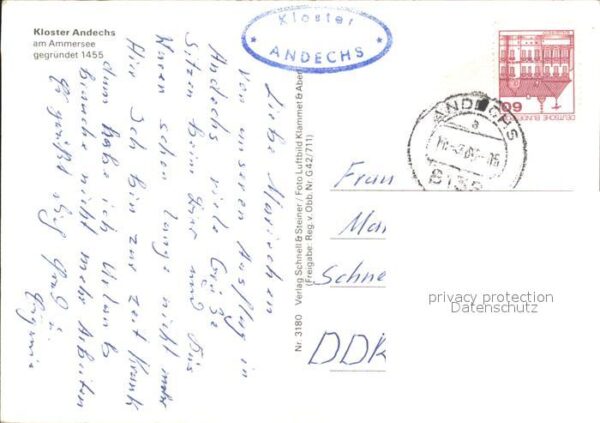 Kloster Andechs
am Ammersee
gegründet 1455
Kloster
ANDECHS
Liebe Mariechen
von unseren Ausflug in
Andechs viele Grüße
Sitzen beim Bier und
Waren schon lange nicht mehr
Hier Ich bin zur zeit Krank
dann habe ich Urlaub
brauche nicht mehr Arbeiten
Es grüßt
Nr. 3180 Verlag Schnell & Steiner / Foto Luftbild Klammet & Aber
(Freigabe: Reg. v. Obb. Nr. G 42/711)
60
DEUTSCHE BUNDESPOST
ANDECHS
a
8138
Frau
Mar
Schne
DDR
privacy protection
Datenschutz